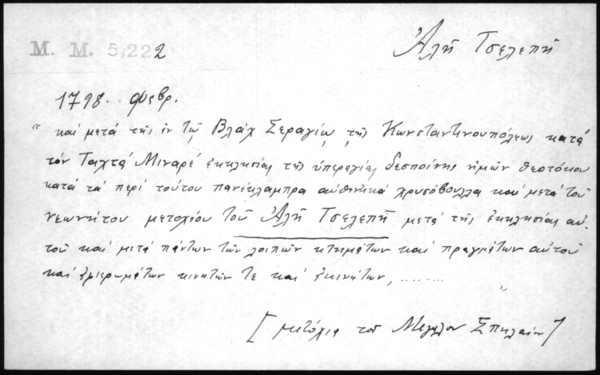 M. M. 5,222
Ἀλῆ Τσελεπῆ
1798. φεβρ.
"καὶ μετά τῆς ἐν τῷ Βλάχ Σεραγίῳ τῆς Κωνσταντινουπόλεως κατά
τόν Ταχτά Μιναρέ ἐκκλησίας τῆς ὑπεραγίας δεσποίνης ἡμῶν θεοτόκου
κατά τά περί τούτου πανέκλαμπρα αὐθεντικά χρυσόβουλλα καί μετά τοῦ
νεωνήτου μετοχίου τοῦ Ἀλῆ Τσελεπῆ μετά τῆς ἐκκλησίας αὐ-
τοῦ καί μετά πάντων τῶν λοιπῶν κτημάτων καί πραγμάτων αὐτοῦ
καί ἀφιερωμάτων κινητῶν τε καί ἀκινήτων, ........
[μετόχια τοῦ Μεγάλου Σπηλαίου]